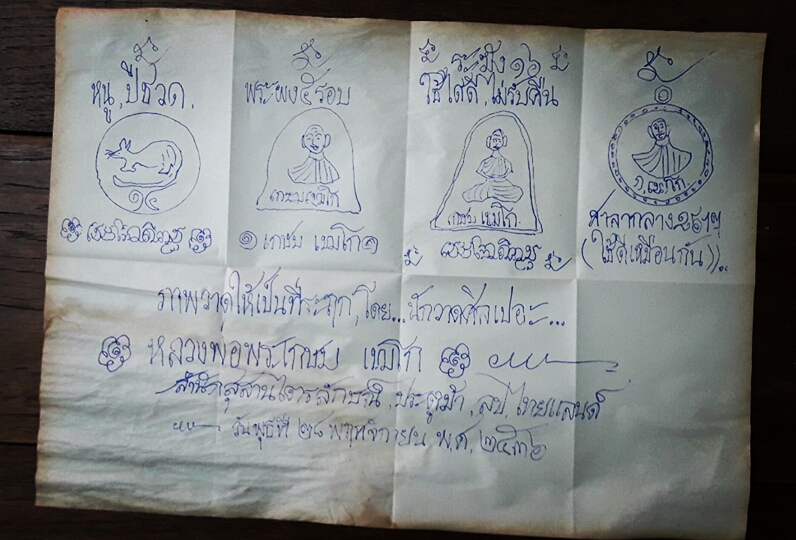 หนู, ปีชวด,
๑๔
พระผง ๕ รอบ
เกษม เขมโก
๑ เกษม เขมโก ๑
ระฆัง ๑๖
ใช้ได้ดี, ไม่รับคืน
เกษม เขมโก
ก. เขมโก
ศาลากลาง
(ใช้ดีเหมือนกัน)
ภาพวาดให้เป็นที่ระฤก, โดย... นักวาดศิลเปอะ...
หลวงพ่อพระเกษม เขมโก
สำนักสุสานไตรลักษณ์, ประตูม้า, ลป, ไทยแลนด์
วันพุธที่ ๒๘ พฤศจิกายน พ.ศ. ๒๕๓๖